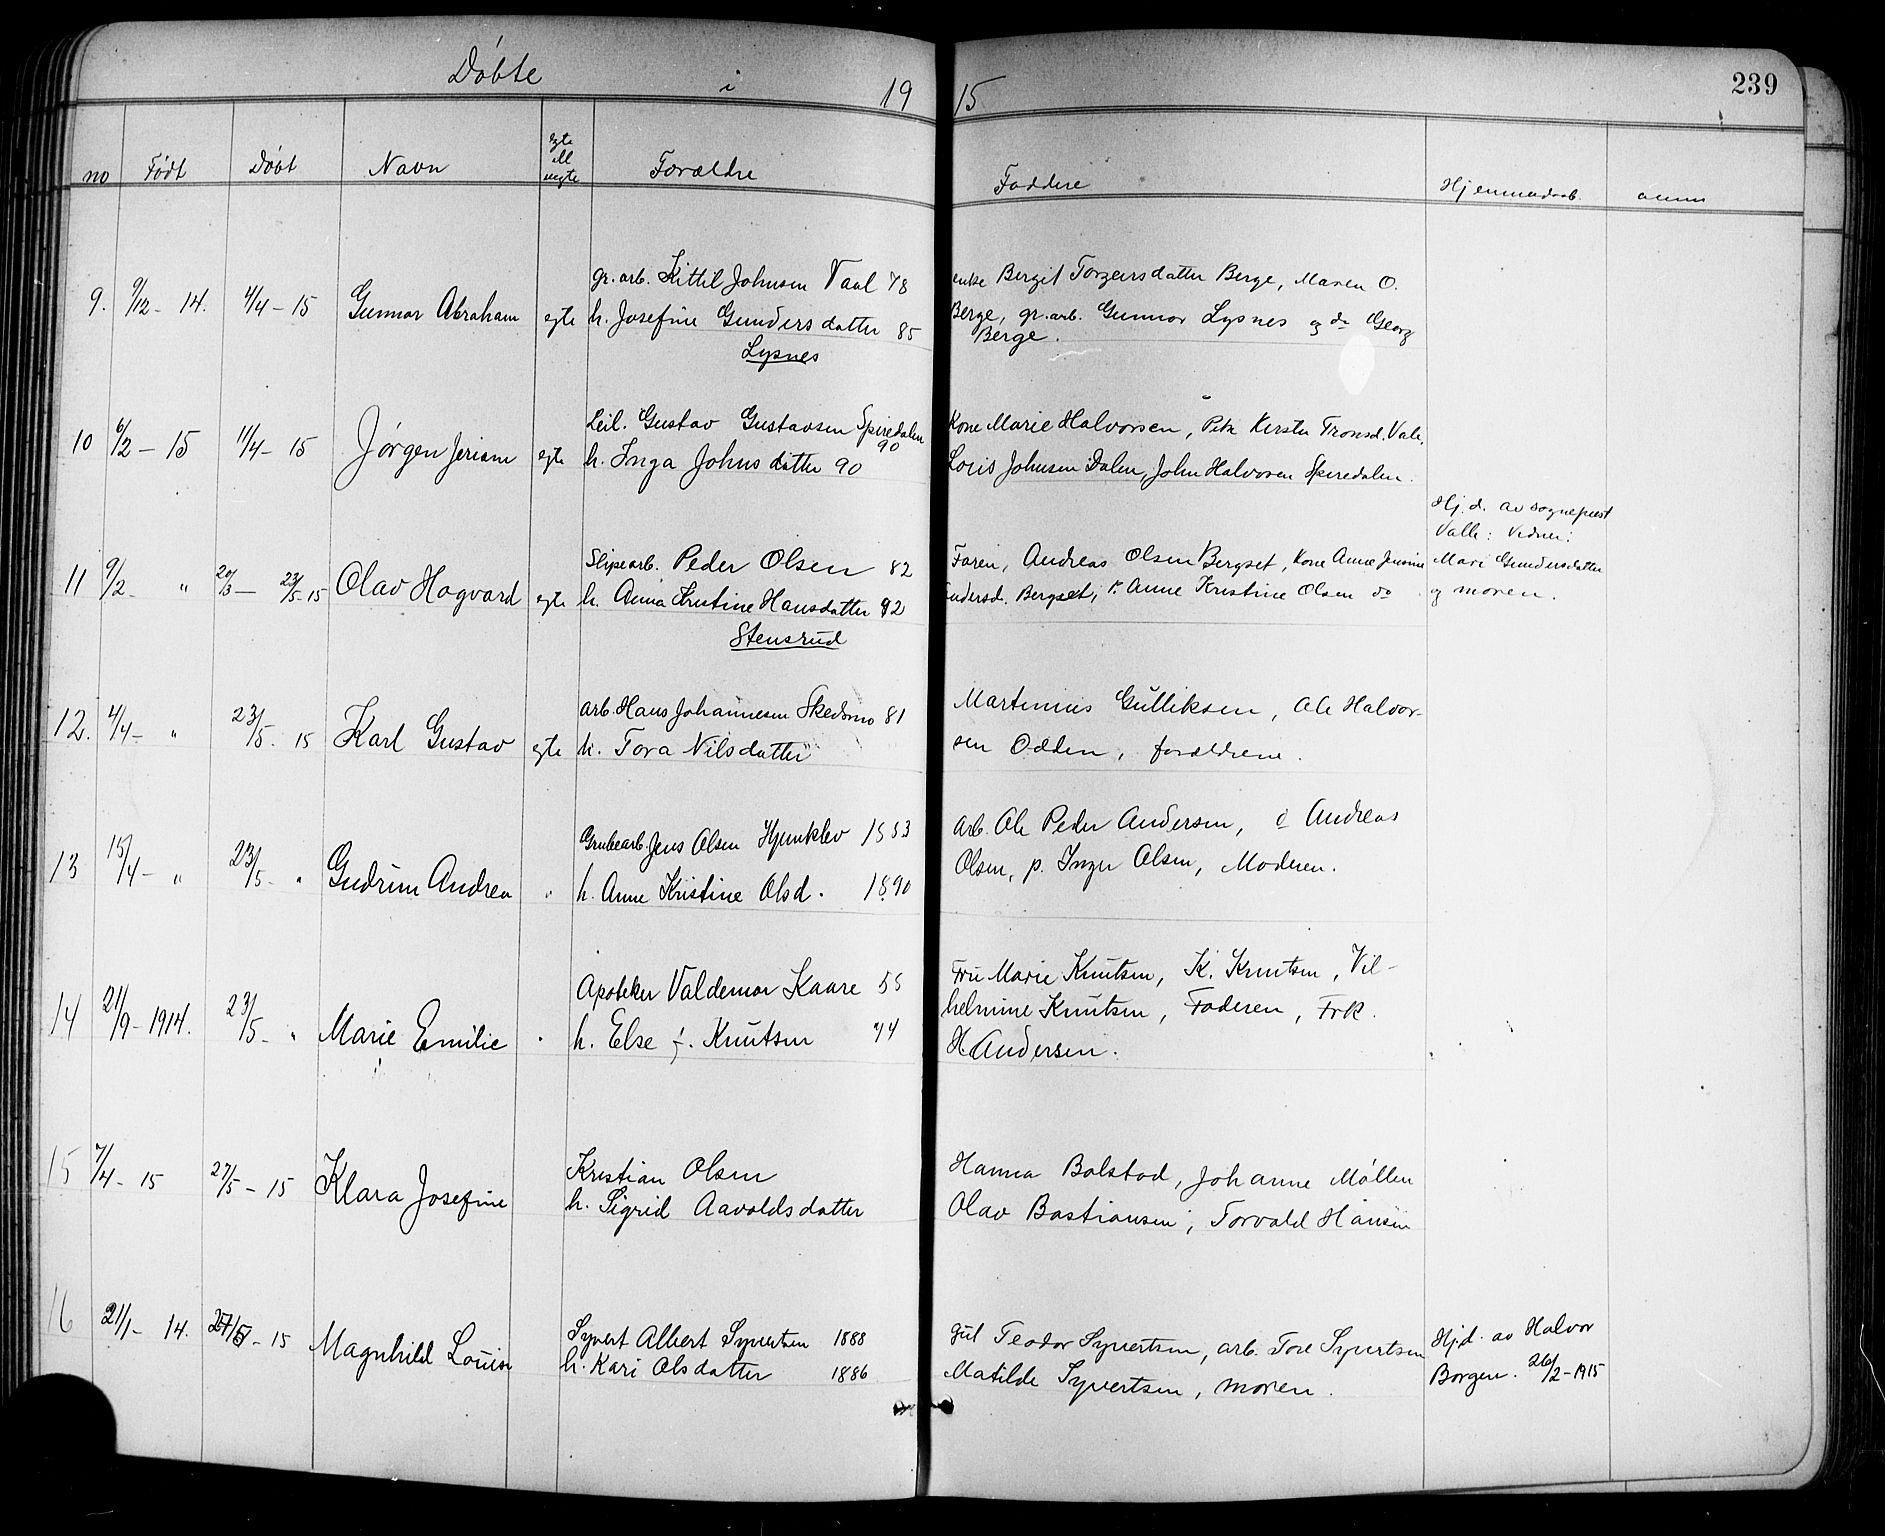 Døbte i 19 15 239
no Født Døbt Navn egte uegte Forældre Faddere Hjemmedaab anm
gr. arb. Kittil Johnsen Vaal 78 enke Bergit Torgeirsdatter Berge, Maren O.
9. 9/12 - 14. 4/4 - 15 Gunnar Abraham egte h. Josefine Gundersdatter 85 Berge, gr. arb. Gunnar Lysnes og do Georg
Lysnes Berge.
Leil. Gustav Gustavsen Spiredalen 90 Kone Marie Halvorsen, Kersti Tronsd. Vale,
10 6/2 - 15 11/4 - 15 Jørgen egte h. Inga Johnsdatter 90 Johnsen Dalen, John Halvorsen Spiredalen.
Hj. d. av sogneprest
Valle: Vidner:
Slipearb. Peder Olsen 82 Faren, Andreas Olsen Bergset, Kone Anne Mari Gundersdatter
11 9/2 - " 20/3 - 23/5 - 15 Olav Hagvard egte h. Anna Kristine Hansdatter 92 Bergset, p. Anne Kristine Olsen do og moren.
Stensrud
arb. Hans Johannesen Skedsmo 81 Martinius Gulliksen, Ole Halvor-
12. 4/4 - " 23/5. 15 Karl Gustav egte h. Tora Nilsdatter sen Odden, forældrene.
Grubearb. Jens Olsen 1883 arb. Ole Peder Andersen, Andreas
13 15/4 - " 23/5 - " Gudrun Andrea " h. Anne Kristine Olsd. 1890 Olsen, p. Inger Olsen, Moderen.
Apoteker Valdemar Kaare 55 Fru Marie Knutsen, K. Knutsen, Vil-
14 21/9 - 1914. 23/5 - " Marie Emilie " h. Else f. Knutsen 74 helmine Knutsen, Faderen, Frk.
H Andersen.
Kristian Olsen Hanna Bolstad, Johanne Møllen
15 7/4 - 15 27/5 - 15 Klara Josefine h. Sigrid Aavoldsdatter Olav Bastiansen, Torvald Hansen
16 21/1 - 14. - 15 Magnhild Louise Syvert Albert Syvertsen 1888 gut Teodor Syvertsen, arb. Tore Syvertsen Hj.d. av Halvor
h. Kari Olsdatter 1886 Matilde Syvertsen, moren. Borgen. 26/2 - 1915